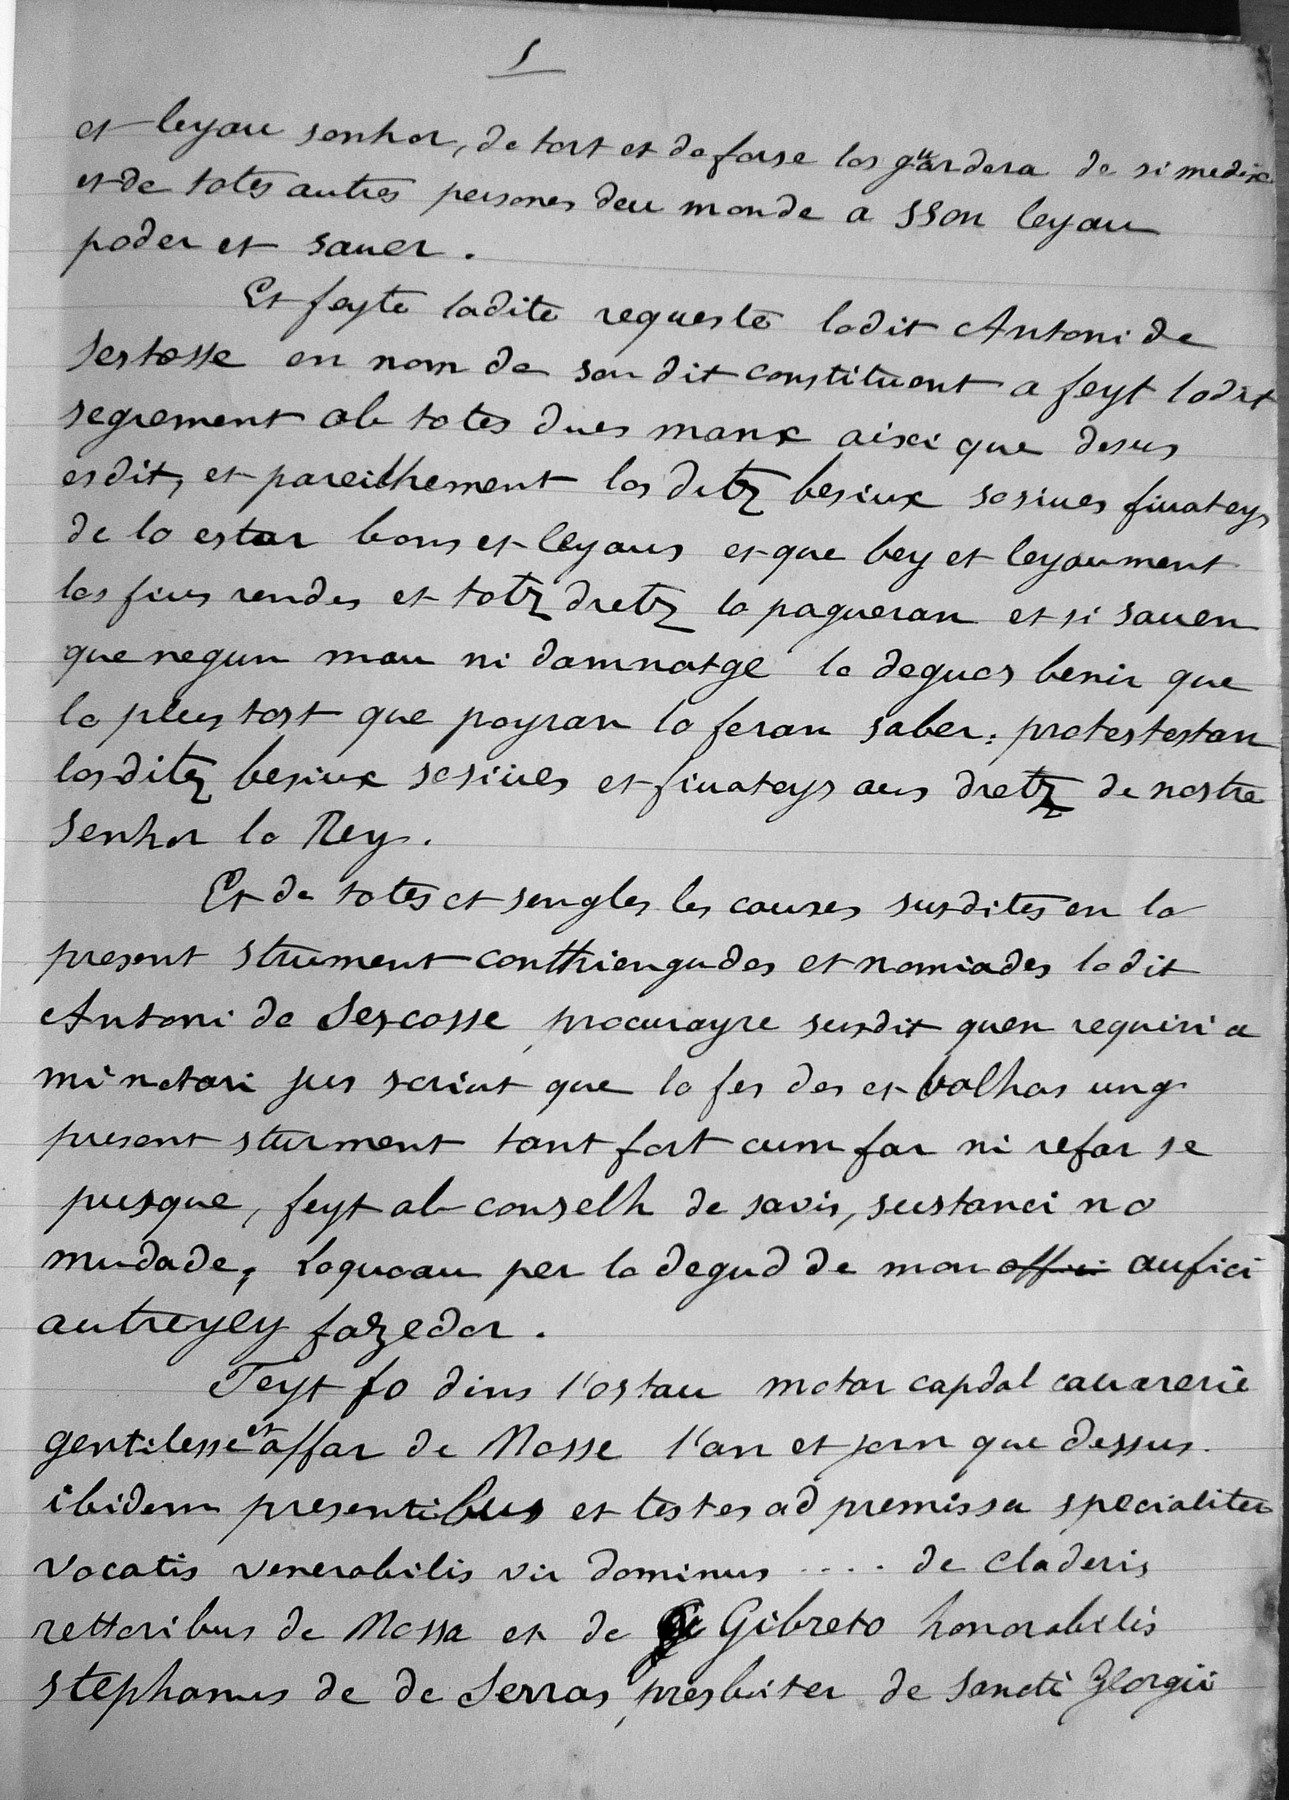 5
et leyau senhor, de tort et de forse los guardera de si medixs
et de totes autres persones deu monde a sson leyau
poder et saver.
Et feyte ladite requeste lodit Antoni de
Sescosse en nom de son dit constituent a feyt lodit
segrement ab totes dues manx aixi que desus
es dit, et pareilhement los ditz besiux sosiues fiuateys
de lo estar bons et leyaus et que bey et leyaument
los fius rendes et totz dretz lo pagueran et si saven
que negun mau ni damnatge lo deguos benir que
lo pleus tost que poyran lo feran saber; protestestan
losditz besiux sosiues et fiuateys aus dretz de nostre
Senhor lo Rey.
Et de totes et sengles les causes susdites en lo
present strument conthiengudes et nomiades lodit
Antoni de Sescosse, procurayre susdit quen requiri a
mi notari jus scriut que lo fes des et valhos ung
present sturment tant fort cum far ni refar se
pusque, feyt ab conselh de savis, sustanci no
mudade; loquoau per lo degud de mon offici aufici
autreyey fazedor.
Feyt fo dins l'ostau motar capdal cauarerie
gentilesse et affar de Nosse l'an et jorn que dessus.
ibidem presentibus et testes ad premissa specialiter
vocatis venerabilis vir dominus .... de Claderis
rettoribus de Nossa et de Gibreto honorabilis
Stephanus de de Serras, presbiter de Sancti Georgii